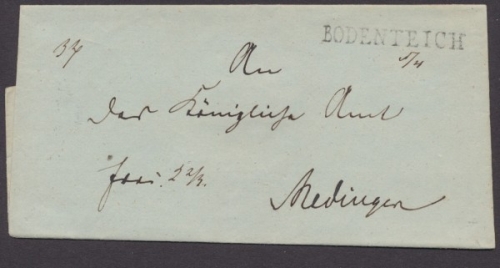 BODENTEICH
5/4
An
das Königliche Amt
Medingen